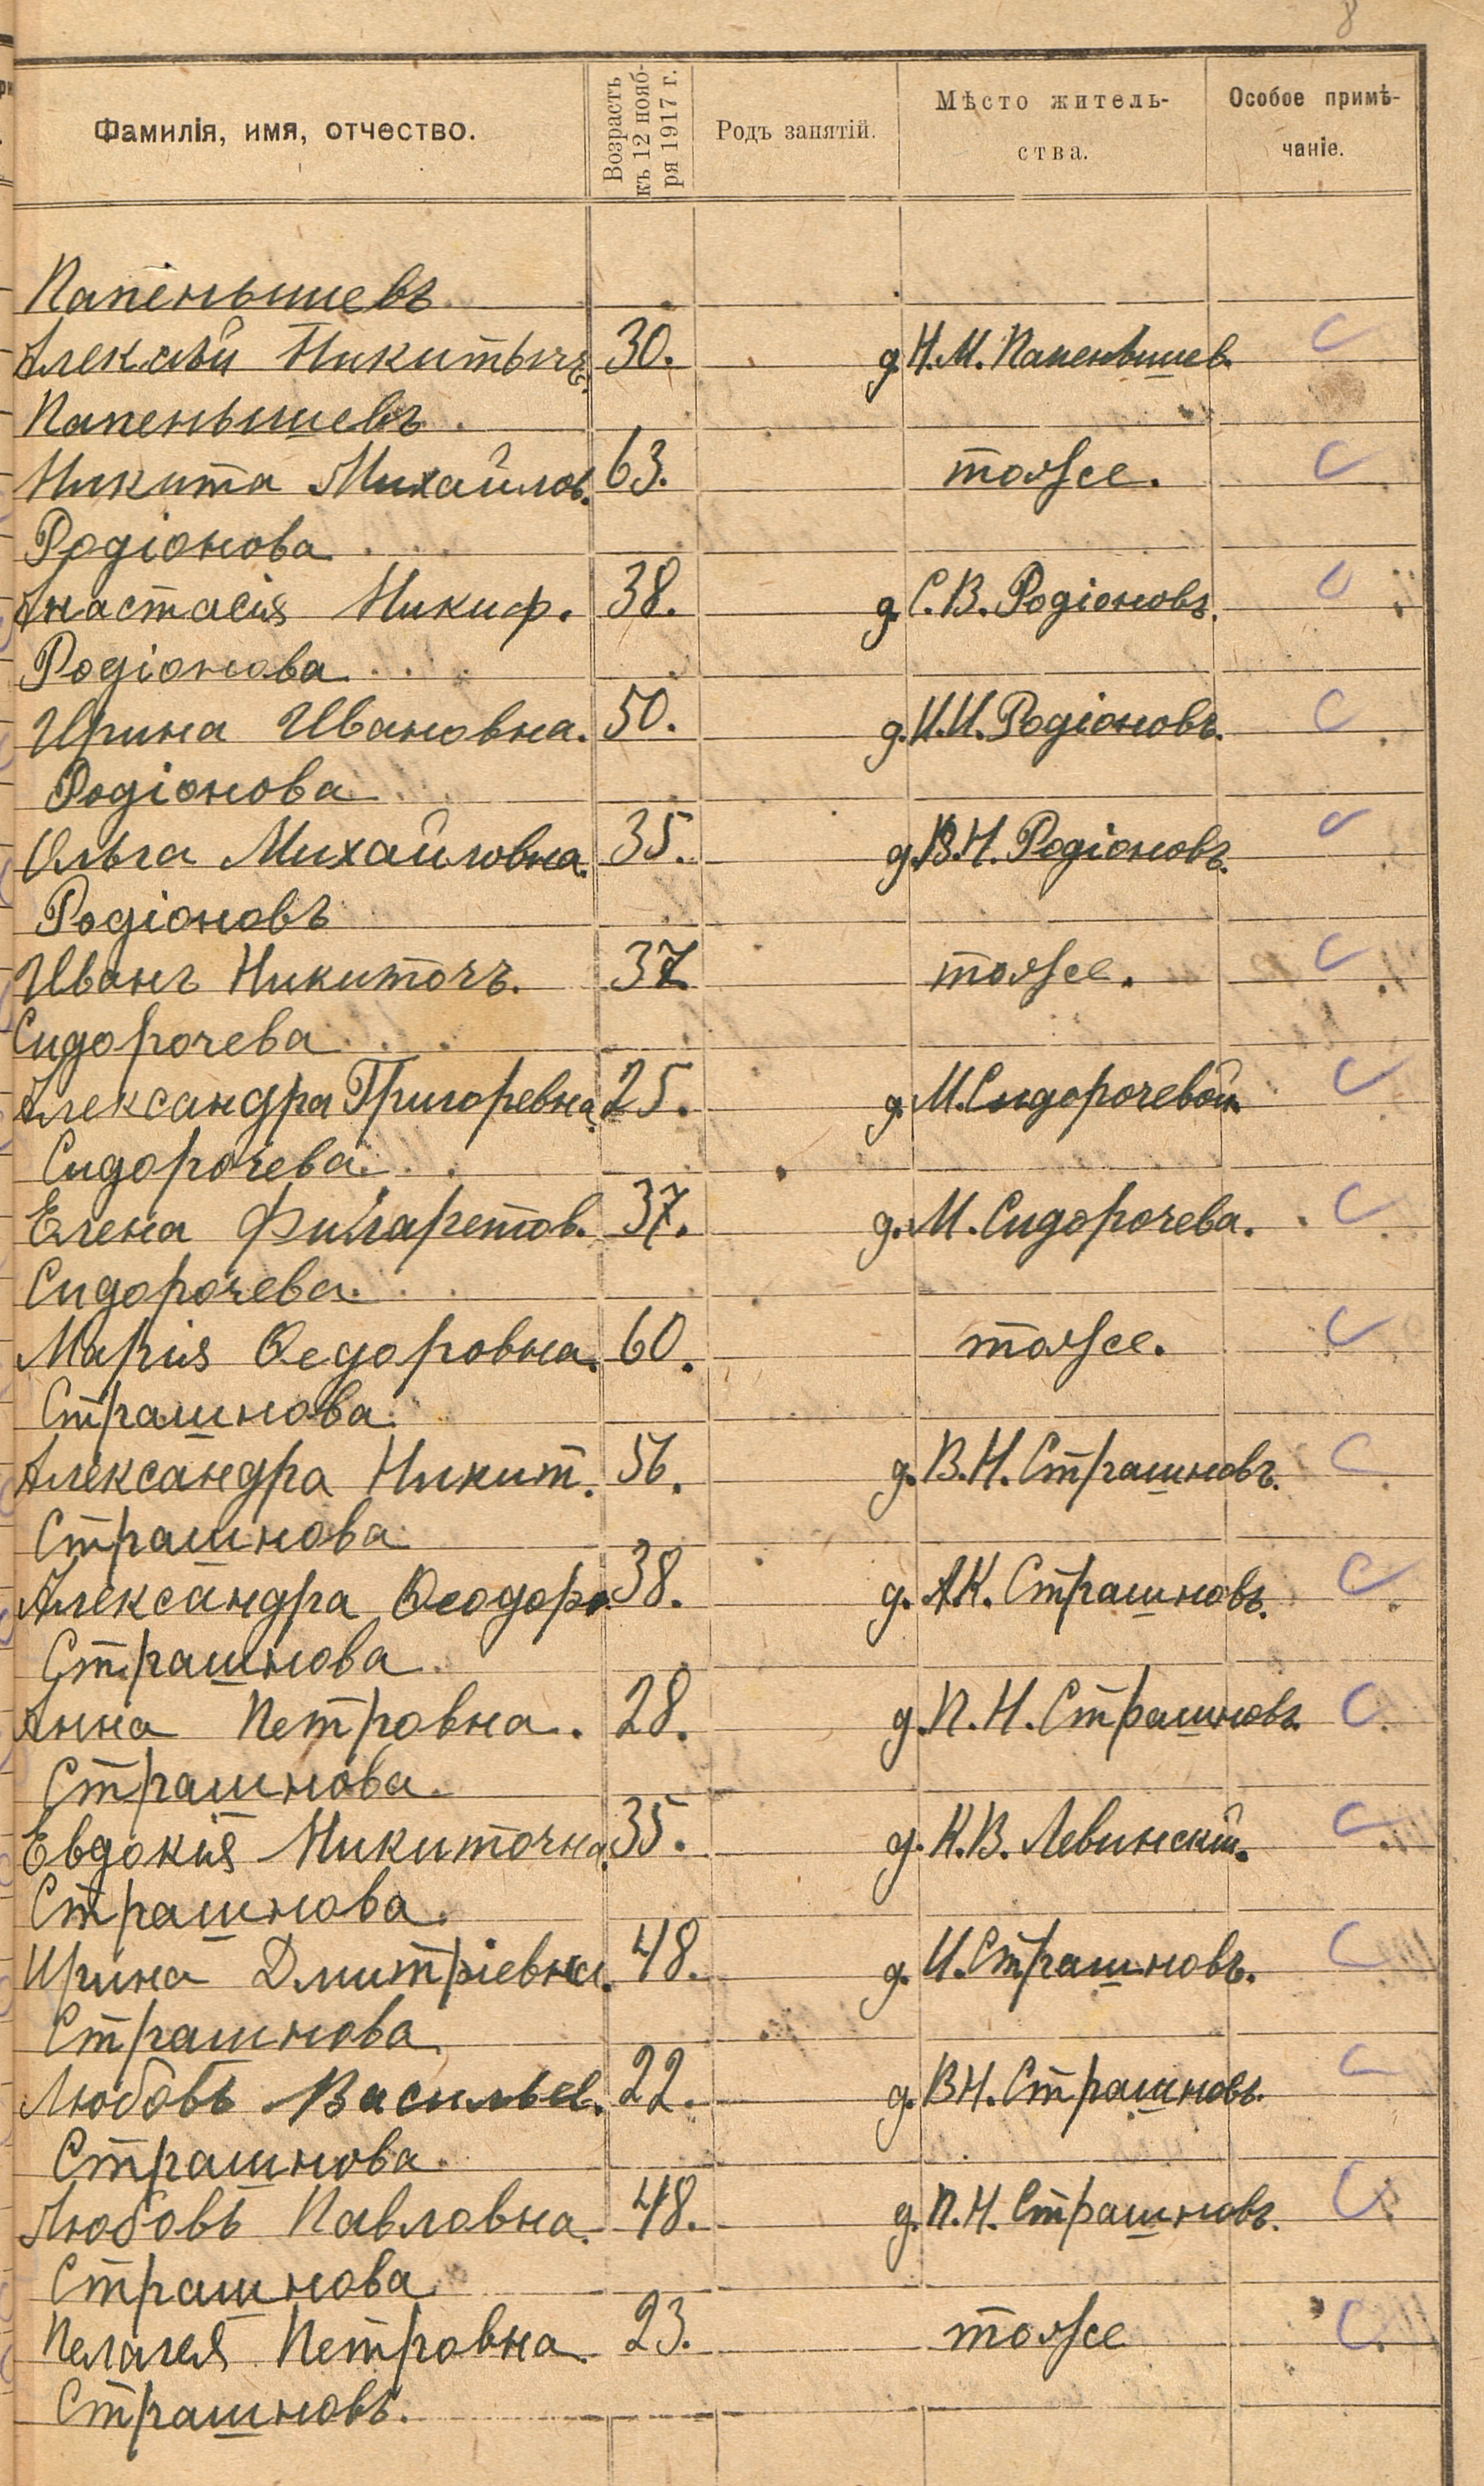 8
Фамилія, имя, отчество.
Возрастъ къ 12 нояб-
ря 1917 г.
Родъ занятій.
Мѣсто житель-
ства.
Особое примѣ-
чаніе.
Папенышевъ
Алексѣй Никитычъ. 30. д. Н. М. Папенышев.
Папенышевъ.
Никита Михайлов. 63. тоже.
Родіонова
Анастасія Никиф. 38. д. С. В. Родіоновъ.
Родіонова
Ирина Ивановна. 50. д. И. И. Родіоновъ.
Родіонова
Ольга Михайловна. 35. д. В. Н. Родіоновъ.
Родіоновъ
Иванъ Никиточъ. 37 тоже.
Сидорочева
Александра Григоревна. 25. д. М. Сидорочевой.
Сидорочева.
Елена Филаретов. 37. д. М. Сидорочева.
Сидорочева.
Марія Ѳедоровна. 60. тоже.
Страшнова.
Александра Никит. 56. д. В. Н. Страшновъ.
Страшнова
Александра Ѳеодоро. 38. д. А К. Страшновъ.
Страшнова.
Анна Петровна. 28. д. П. Н. Страшновъ.
Страшнова.
Евдокія Никиточна. 35. д. К. В. Левинскій.
Страшнова.
Ирина Дмитріевна. 48. д. И. Страшновъ.
Страшнова.
Любовь Васильев. 22. д. В Н. Страшновъ.
Страшнова.
Любовь Павловна. 48. д. П. Н. Страшновъ.
Страшнова
Пелагея Петровна. 23. тоже
Страшновъ.